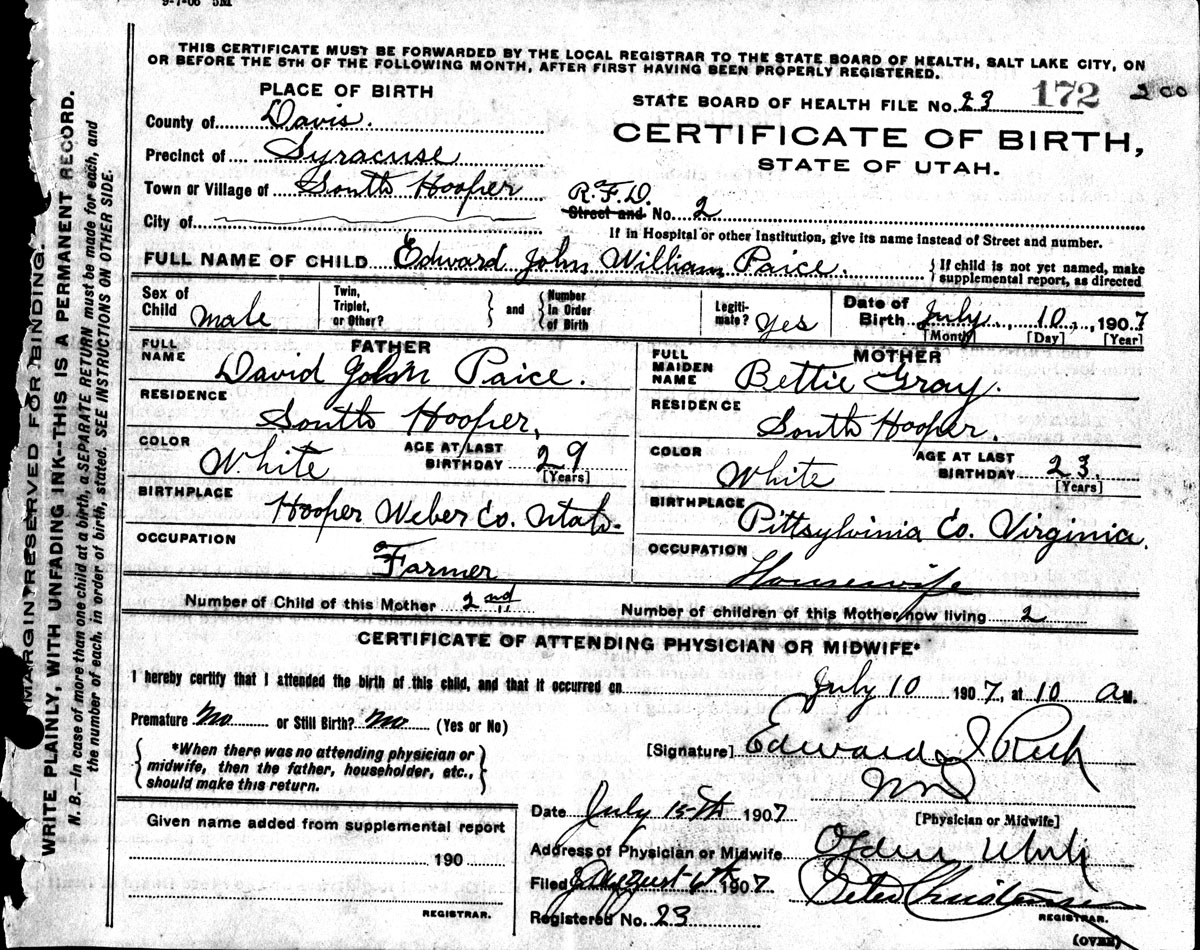 9-7-06 5M
THIS CERTIFICATE MUST BE FORWARDED BY THE LOCAL REGISTRAR TO THE STATE BOARD OF HEALTH, SALT LAKE CITY, ON
OR BEFORE THE 5TH OF THE FOLLOWING MONTH, AFTER FIRST HAVING BEEN PROPERLY REGISTERED.
PLACE OF BIRTH
STATE BOARD OF HEALTH FILE No. 23 172 200
County of Davis.
CERTIFICATE OF BIRTH,
STATE OF UTAH.
Precinct of Syracuse
Town or Village of South Hooper
R.F.D.
Street and No. 2
City of
If in Hospital or other Institution, give its name instead of Street and number.
FULL NAME OF CHILD Edward John William Paice. { If child is not yet named, make
supplemental report, as directed
Sex of Child Male
Twin, Triplet, or Other? } and { Number in Order of Birth
Legitimate? Yes
Date of Birth July, 10, 1907
[Month] [Day] [Year]
FATHER
FULL NAME David John Paice.
RESIDENCE South Hooper,
COLOR White AGE AT LAST BIRTHDAY 29
[Years]
BIRTHPLACE Hooper Weber Co. Utah.
OCCUPATION Farmer
MOTHER
FULL MAIDEN NAME Bettie Gray.
RESIDENCE South Hooper.
COLOR White AGE AT LAST BIRTHDAY 23.
[Years]
BIRTHPLACE Pittsylvinia Co. Virginia.
OCCUPATION Housewife
Number of Child of this Mother 2nd Number of children of this Mother now living 2
CERTIFICATE OF ATTENDING PHYSICIAN OR MIDWIFE*
I hereby certify that I attended the birth of this child, and that it occurred on July 10 1907, at 10 A M.
Premature No or Still Birth? No (Yes or No)
{ *When there was no attending physician or
midwife, then the father, householder, etc.,
should make this return. }
[Signature] Edward I Rich
MD
[Physician or Midwife]
Date July 15th 1907
Address of Physician or Midwife Ogden Utah
Filed August 6th 1907 Peter Christensen
REGISTRAR.
Registered No. 23
(OVER)
Given name added from supplemental report
190
REGISTRAR.
MARGIN RESERVED FOR BINDING.
WRITE PLAINLY, WITH UNFADING INK--THIS IS A PERMANENT RECORD.
N. B.—In case of more than one child at a birth, a SEPARATE RETURN must be made for each, and
the number of each, in order of birth, stated. SEE INSTRUCTIONS ON OTHER SIDE.